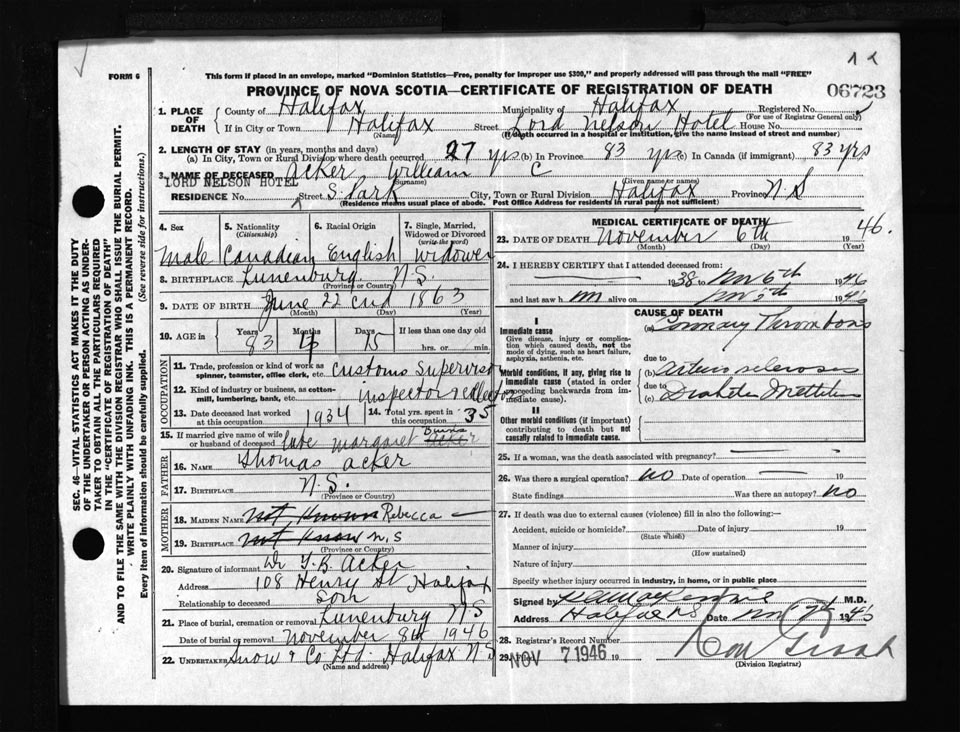 FORM 6
This form if placed in an envelope, marked "Dominion Statistics—Free, penalty for improper use $300," and properly addressed will pass through the mail "FREE"
PROVINCE OF NOVA SCOTIA—CERTIFICATE OF REGISTRATION OF DEATH
06723
1. PLACE OF DEATH
County of Halifax Municipality of Halifax Registered No.
(For use of Registrar General only)
If in City or Town Halifax Street Lord Nelson Hotel House No.
(Name) (If death occurred in a hospital or institution, give the name instead of street and number)
2. LENGTH OF STAY (in years, months and days)
(a) In City, Town or Rural Division where death occurred 27 yrs (b) In Province 83 yrs (c) In Canada (if immigrant) 83 yrs
3. NAME OF DECEASED Acker William C
(Surname) (Given name or names)
LORD NELSON HOTEL
RESIDENCE No. Street S. Park City, Town or Rural Division Halifax Province N.S
(Residence means usual place of abode. Post Office Address for residents in rural parts not sufficient)
4. Sex
Male
5. Nationality
(Citizenship)
Canadian
6. Racial Origin
English
7. Single, Married, Widowed or Divorced
(write the word)
Widower
8. BIRTHPLACE Lunenburg N.S.
(Province or Country)
9. DATE OF BIRTH June 22nd 1863
(Month) (Day) (Year)
10. AGE in
Years Months Days If less than one day old
83 15 hrs. or min.
OCCUPATION
11. Trade, profession or kind of work as spinner, teamster, office clerk, etc. Customs Supervisor
12. Kind of industry or business, as cotton-mill, lumbering, bank, etc. inspector & collector
13. Date deceased last worked at this occupation 1934
14. Total yrs. spent in this occupation 35
15. If married give name of wife or husband of deceased late Margaret Burns Acker
FATHER
16. NAME Thomas Acker
17. BIRTHPLACE N.S.
(Province or Country)
MOTHER
18. MAIDEN NAME Not Known Rebecca
19. BIRTHPLACE Not Know N.S
(Province or Country)
20. Signature of informant Dr T.B. Acker
Address 108 Henry St Halifax
Relationship to deceased Son
21. Place of burial, cremation or removal Lunenburg N.S
Date of burial or removal November 8th 1946
22. UNDERTAKER Snow & Co Ltd. Halifax N.S
(Name and address)
MEDICAL CERTIFICATE OF DEATH
23. DATE OF DEATH November 6th 1946.
(Month) (Day) (Year)
24. I HEREBY CERTIFY that I attended deceased from:
1938 Nov 6th 1946
and last saw him alive on Nov 5th 1946
CAUSE OF DEATH
I
Immediate cause
Give disease, injury or complication which caused death, not the mode of dying, such as heart failure, asphyxia, asthenia, etc.
(a) Coronary Thrombosis
due to
Morbid conditions, if any, giving rise to immediate cause (stated in order proceeding backwards from immediate cause).
(b) Arteriosclerosis
due to
(c) Diabetes Mellitus
II
Other morbid conditions (if important) contributing to death but not causally related to immediate cause.
25. If a woman, was the death associated with pregnancy?
26. Was there a surgical operation? no Date of operation 19
State findings Was there an autopsy? no
27. If death was due to external causes (violence) fill in also the following:—
Accident, suicide or homicide? Date of injury 19
(State which)
Manner of injury
(How sustained)
Nature of injury
Specify whether injury occurred in industry, in home, or in public place
Signed by M.D.
Address Halifax N.S Date Nov 7th 1946
28. Registrar's Record Number
29. NOV 7 1946 19
(Division Registrar)
SEC. 46—VITAL STATISTICS ACT MAKES IT THE DUTY
OF THE UNDERTAKER OR PERSON ACTING AS UNDER-
TAKER TO OBTAIN ALL THE PARTICULARS REQUIRED
IN THE "CERTIFICATE OF REGISTRATION OF DEATH"
AND TO FILE THE SAME WITH THE DIVISION REGISTRAR WHO SHALL ISSUE THE BURIAL PERMIT.
WRITE PLAINLY WITH UNFADING INK. THIS IS A PERMANENT RECORD.
Every item of information should be carefully supplied. (See reverse side for instructions.)